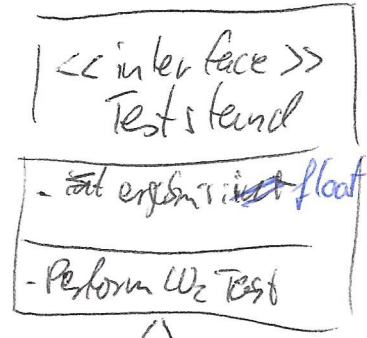 <<interface>>
Teststand
- ergebnis: float
- Perform CO2 Test